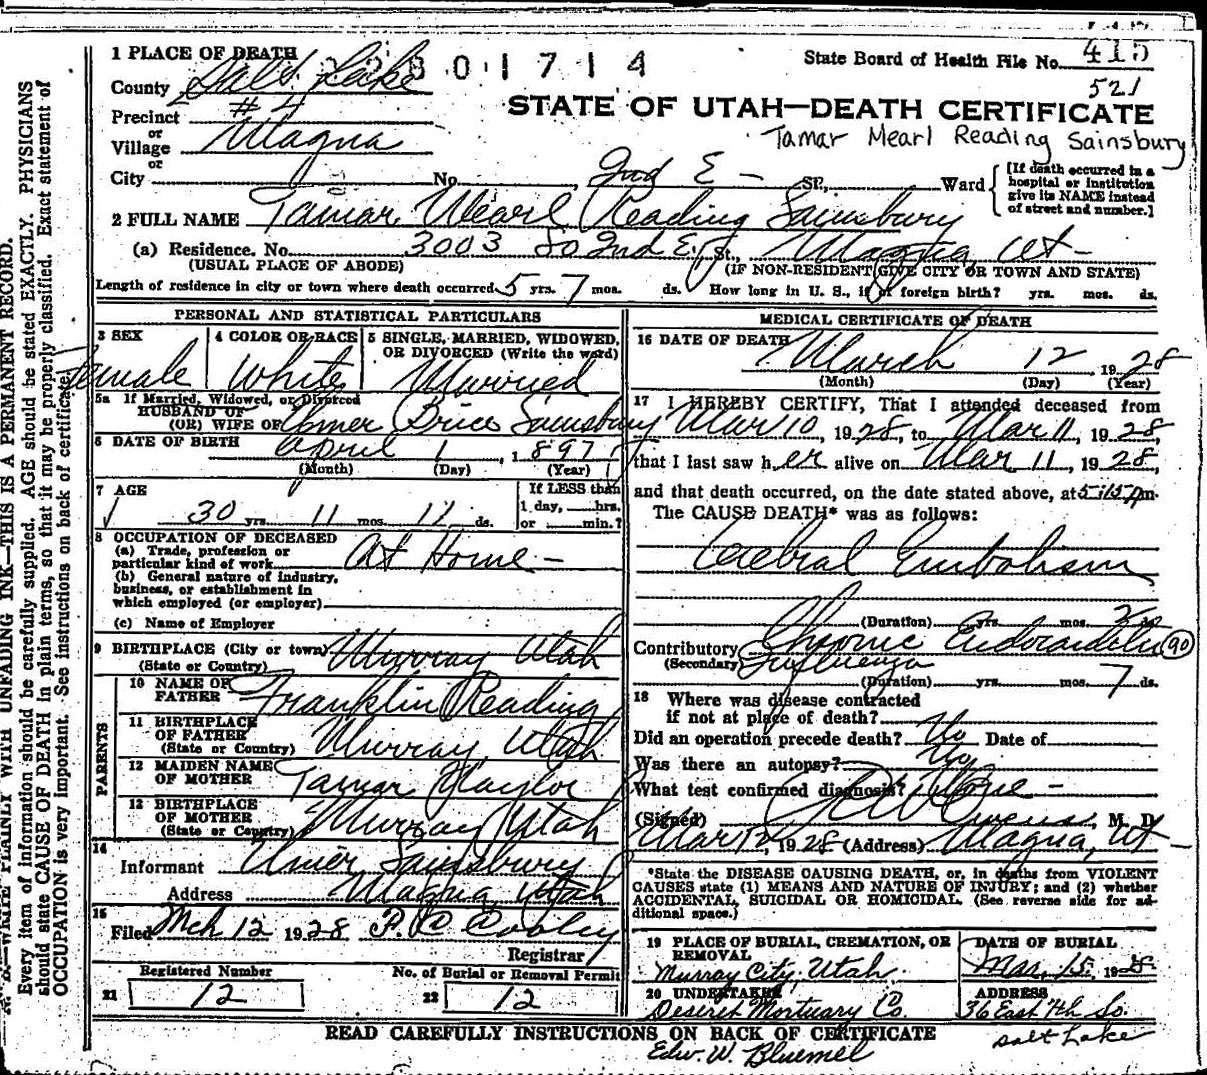 1 PLACE OF DEATH
State Board of Health File No. 415
County Salt Lake
01714
521
STATE OF UTAH—DEATH CERTIFICATE
Precinct #4
or
Village Magna
Tamar Mearl Reading Sainsbury
or
City No. 2nd E - St., Ward
[If death occurred in a hospital or institution give its NAME instead of street and number.]
2 FULL NAME Tamar Mearl Reading Sainsbury
(a) Residence. No. 3003 So 2nd E St., Magna, Ut-
(USUAL PLACE OF ABODE) (IF NON-RESIDENT GIVE CITY OR TOWN AND STATE)
Length of residence in city or town where death occurred 5 yrs. 7 mos. ds. How long in U. S., if of foreign birth? yrs. mos. ds.
PERSONAL AND STATISTICAL PARTICULARS
3 SEX Female
4 COLOR OR RACE White
5 SINGLE, MARRIED, WIDOWED, OR DIVORCED (Write the word) Married
5a If Married, Widowed, or Divorced
HUSBAND OF
(OR) WIFE OF Brice Sainsbury
6 DATE OF BIRTH April 1, 1897
(Month) (Day) (Year)
7 AGE 30 yrs. 11 mos. 11 ds.
If LESS than 1 day, hrs. or min.?
8 OCCUPATION OF DECEASED
(a) Trade, profession or particular kind of work At Home -
(b) General nature of industry, business, or establishment in which employed (or employer)
(c) Name of Employer
9 BIRTHPLACE (City or town) Murray Utah
(State or Country)
PARENTS
10 NAME OF FATHER Franklin Reading
11 BIRTHPLACE OF FATHER (State or Country) Murray, Utah
12 MAIDEN NAME OF MOTHER Tamar
13 BIRTHPLACE OF MOTHER (State or Country) Murray Utah
14
Informant Sainsbury
Address Magna, Utah
15
Filed Mch 12 1928
Registrar
Registered Number
21 12
No. of Burial or Removal Permit
22 12
MEDICAL CERTIFICATE OF DEATH
16 DATE OF DEATH March 12, 1928
(Month) (Day) (Year)
17 I HEREBY CERTIFY, That I attended deceased from
Mar 10, 1928, to Mar 11, 1928,
that I last saw her alive on Mar 11, 1928,
and that death occurred, on the date stated above, at 5:15 m.
The CAUSE DEATH* was as follows:
Cerebral Embolism
(Duration) yrs. mos. ds.
Contributory Chronic Endocarditis 90
(Secondary) Influenza
(Duration) yrs. mos. 7 ds.
18 Where was disease contracted
if not at place of death?
Did an operation precede death? No Date of
Was there an autopsy? No
What test confirmed diagnosis? None -
(Signed) Owens, M. D.
Mar 12, 1928 (Address) Magna, Ut
*State the DISEASE CAUSING DEATH, or, in deaths from VIOLENT
CAUSES state (1) MEANS AND NATURE OF INJURY; and (2) whether
ACCIDENTAL, SUICIDAL OR HOMICIDAL. (See reverse side for ad-
ditional space.)
19 PLACE OF BURIAL, CREMATION, OR REMOVAL
Murray City, Utah.
DATE OF BURIAL
Mar. 15. 1928
20 UNDERTAKER
Deseret Mortuary Co.
ADDRESS
36 East 4th So.
Salt Lake
READ CAREFULLY INSTRUCTIONS ON BACK OF CERTIFICATE
Edw. W. Bluemel
WRITE PLAINLY WITH UNFADING INK—THIS IS A PERMANENT RECORD.
Every item of information should be carefully supplied. AGE should be stated EXACTLY. PHYSICIANS
should state CAUSE OF DEATH in plain terms, so that it may be properly classified. Exact statement of
OCCUPATION is very important. See instructions on back of certificate.